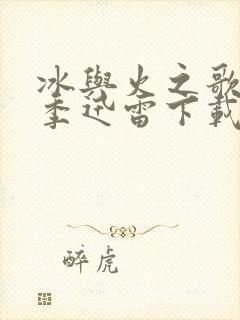 冰與火之歌
季迅雷下載
醉虎